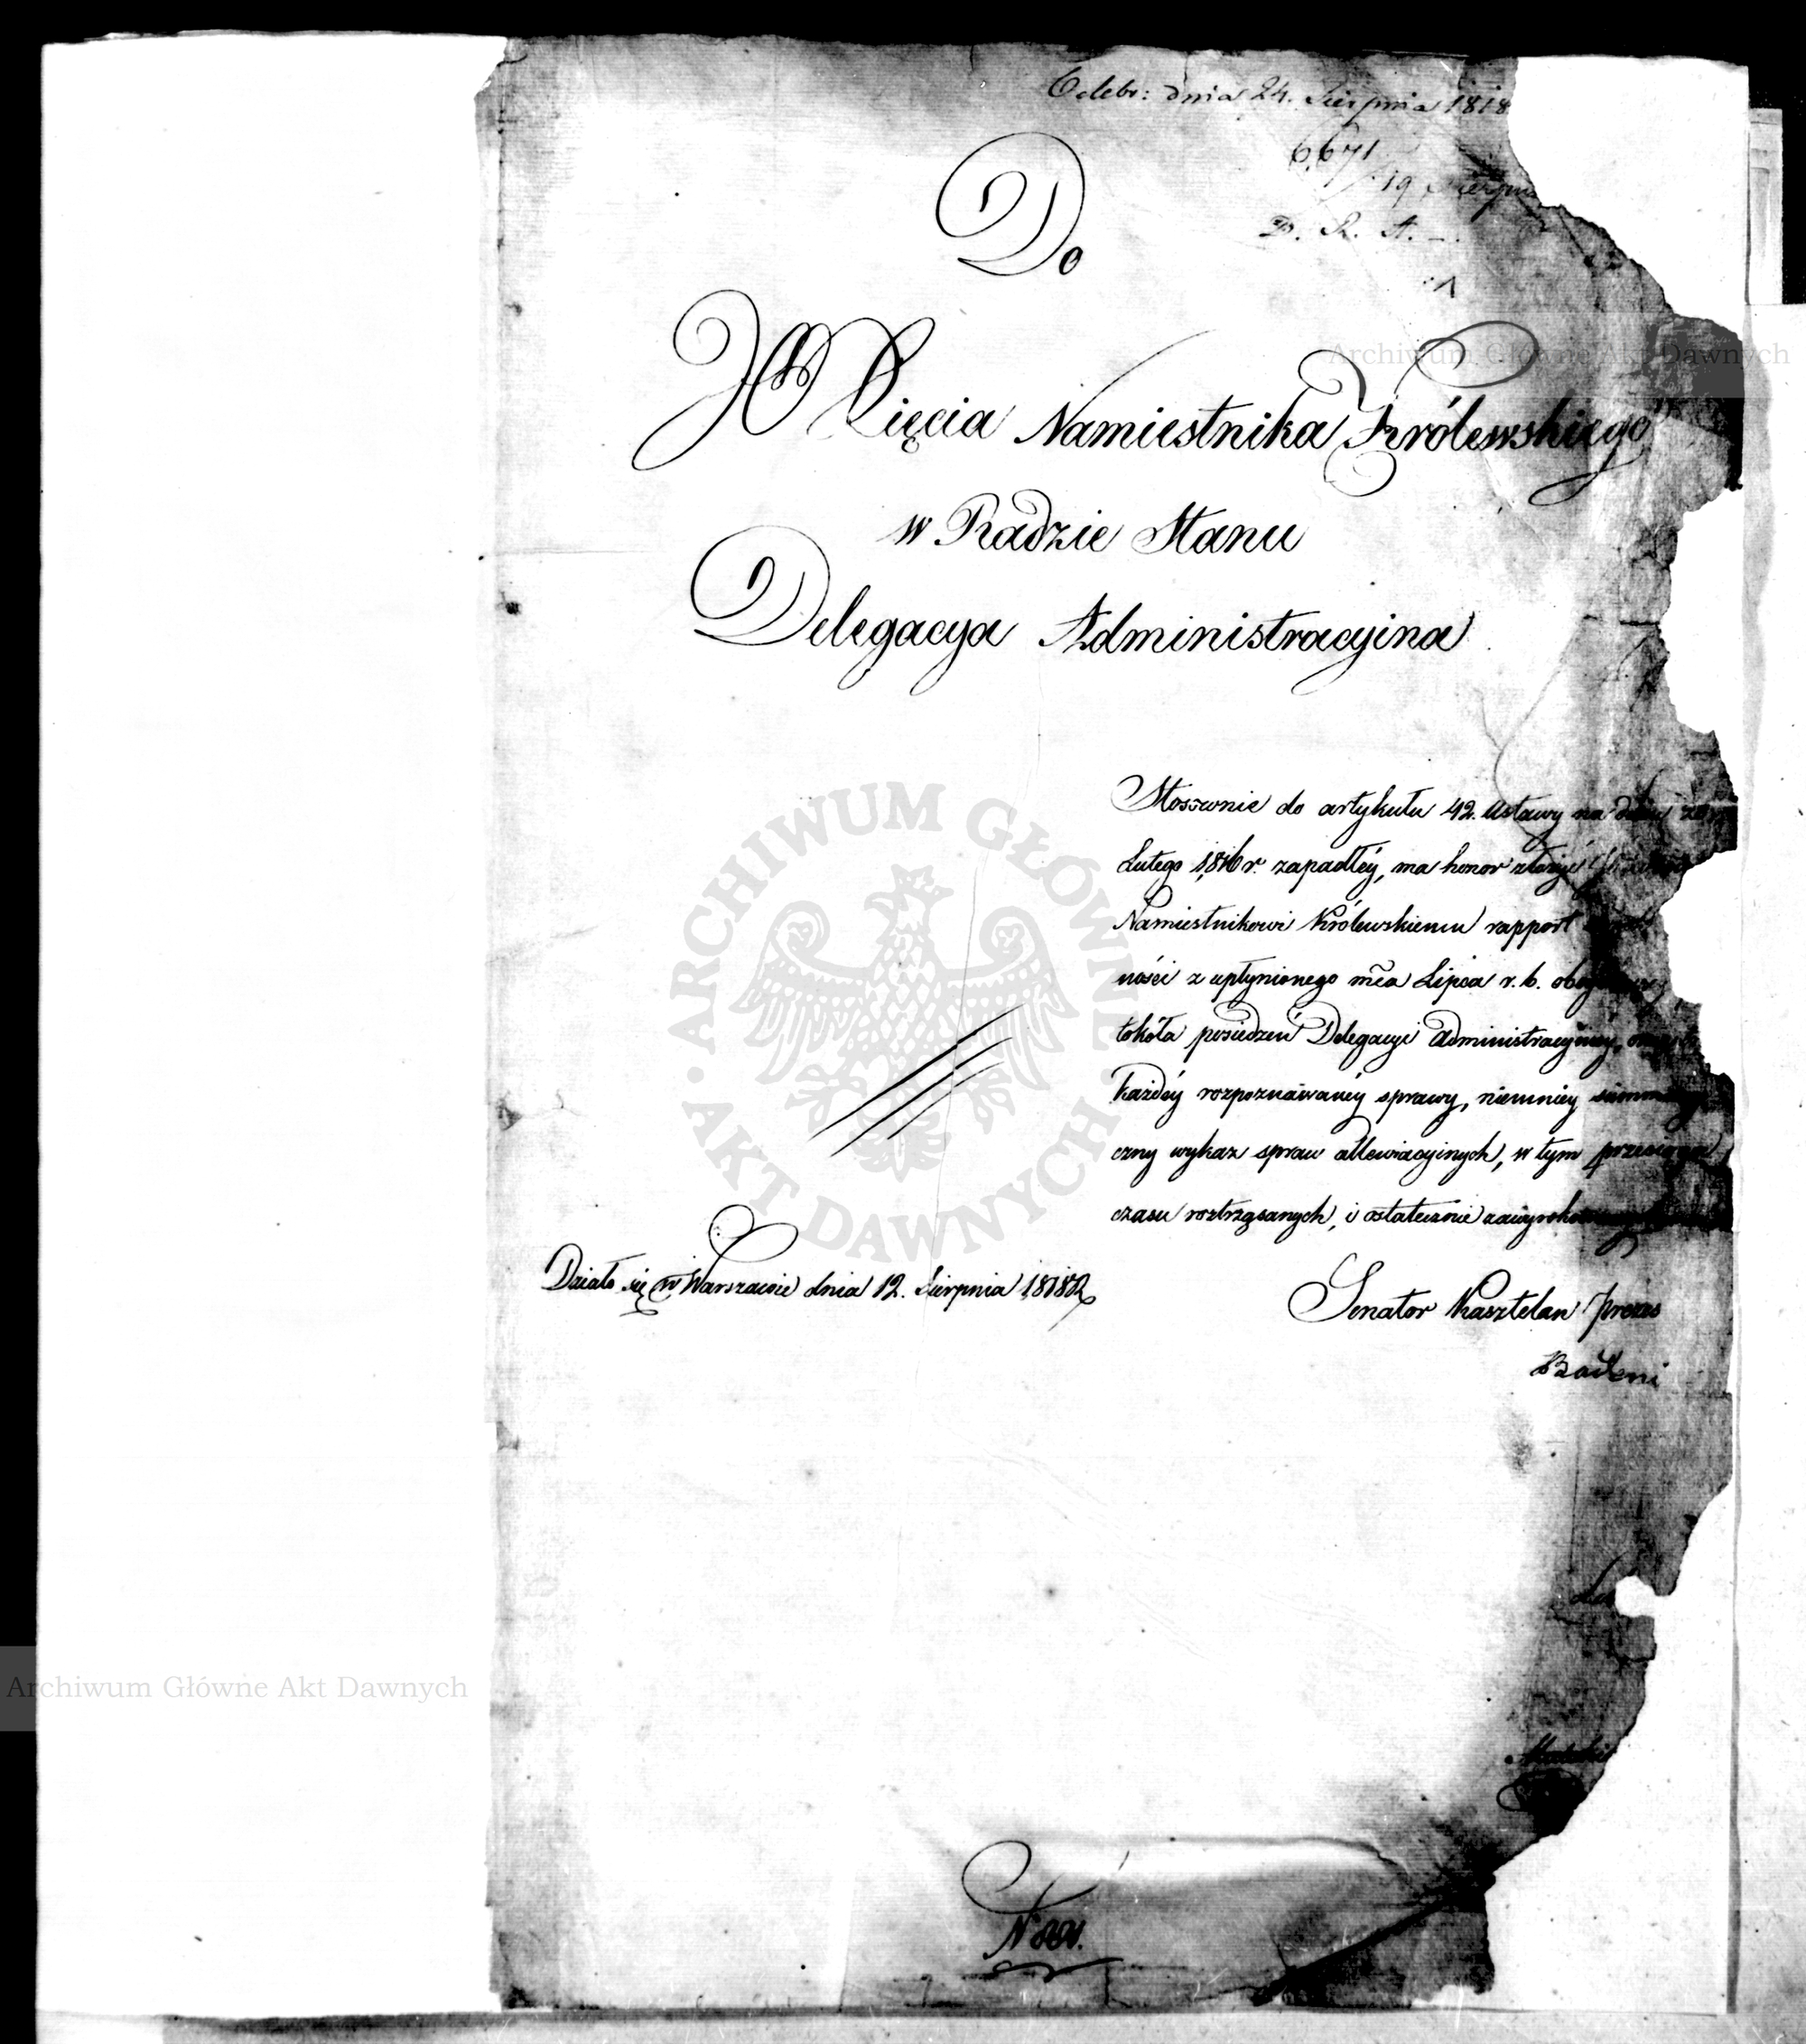 Odebr: dnia 24. Sierpnia 1818
6,671
19 Sierpnia
D. R. A. —
Do
JO Xięcia Namiestnika Królewskiego
w Radzie Stanu
Delegacya Administracyina
Stosownie do artykułu 42. Ustawy na
Lutego 1816 r. zapadłéy, ma honor złożyć
Namiestnikowi Królewskiemu rapport
ności z upłynionego mca Lipca r. b.
tokóła posiedzeń Delegacyi Administracyiney,
każdéy rozpoznáwanéy sprawy, niemniéy
czny wykaz spraw allewiacyinych, w tym przeciągu
czasu roztrząsanych, i ostatecznie
Działo się w Warszawie dnia 12. Sierpnia 1818 R
Senator Kasztelan Prezes
Badeni
Archiwum Główne Akt Dawnych
ARCHIWUM GŁÓWNE AKT DAWNYCH
Archiwum Główne Akt Dawnych